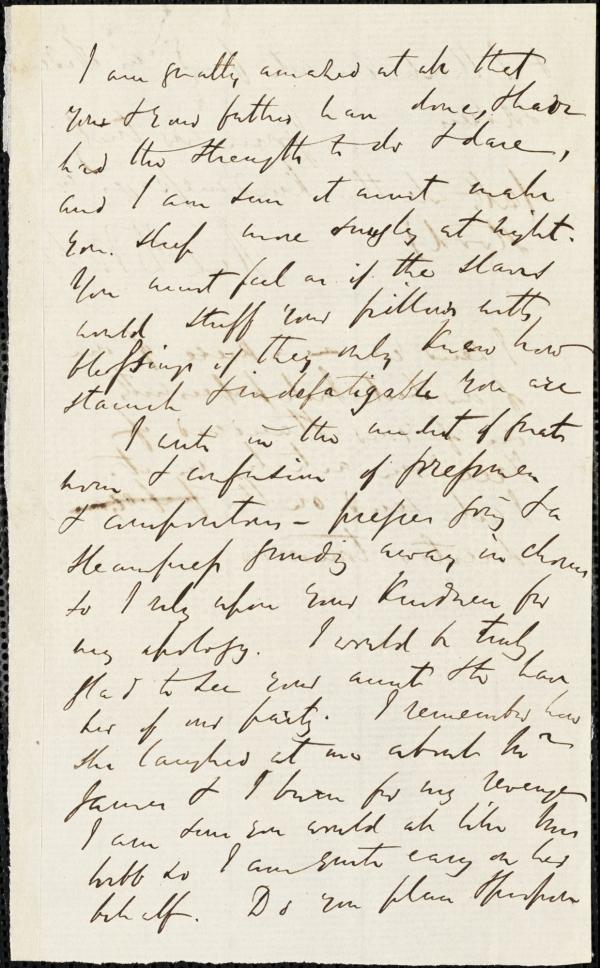 I am greatly amazed at all that
you & your father have done, & have
had the strength to do & dare,
and I am sure it must make
you sleep more snugly at night.
You must feel as if the slaves
would stuff your pillows with
blessings if they only knew how
staunch & indefatigable you are
I write in the midst of great
noise & confusion of pressmen
& compositors – presses going & a
steampress grinding away in chorus
so I rely upon your kindness for
my apology. I would be truly
glad to see your aunt & to have
her of our party. I remember how
she laughed at me about Mr
James & I burn for my revenge
I am sure you would all like Miss
Webb so I am quite easy on her
behalf. Do you plan &